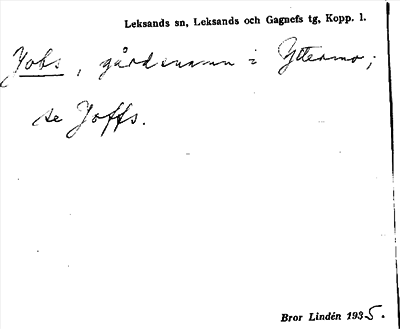 Leksands sn, Leksands och Gagnefs tg, Kopp. l.
Jobs, gårdsnamn i Yttermo;
se Joffs.
Bror Lindén 1935.